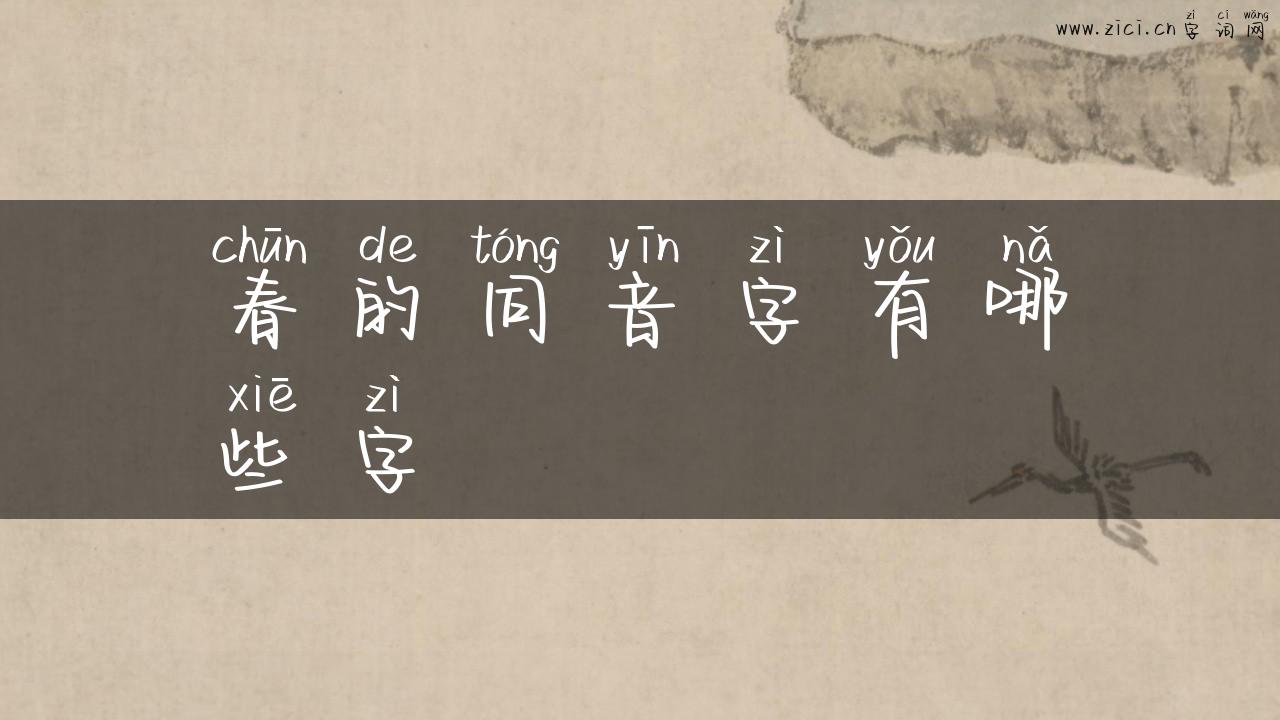 zì cí wǎng
www.zici.cn 字 词 网
chūn de tóng yīn zì yǒu nǎ
春 的 同 音 字 有 哪
xiē zì
些 字